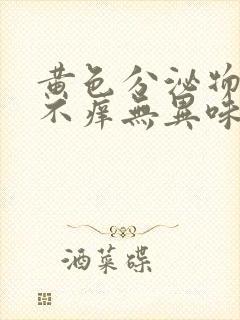 黄色分泌物
不痒無異味
酒菜碟